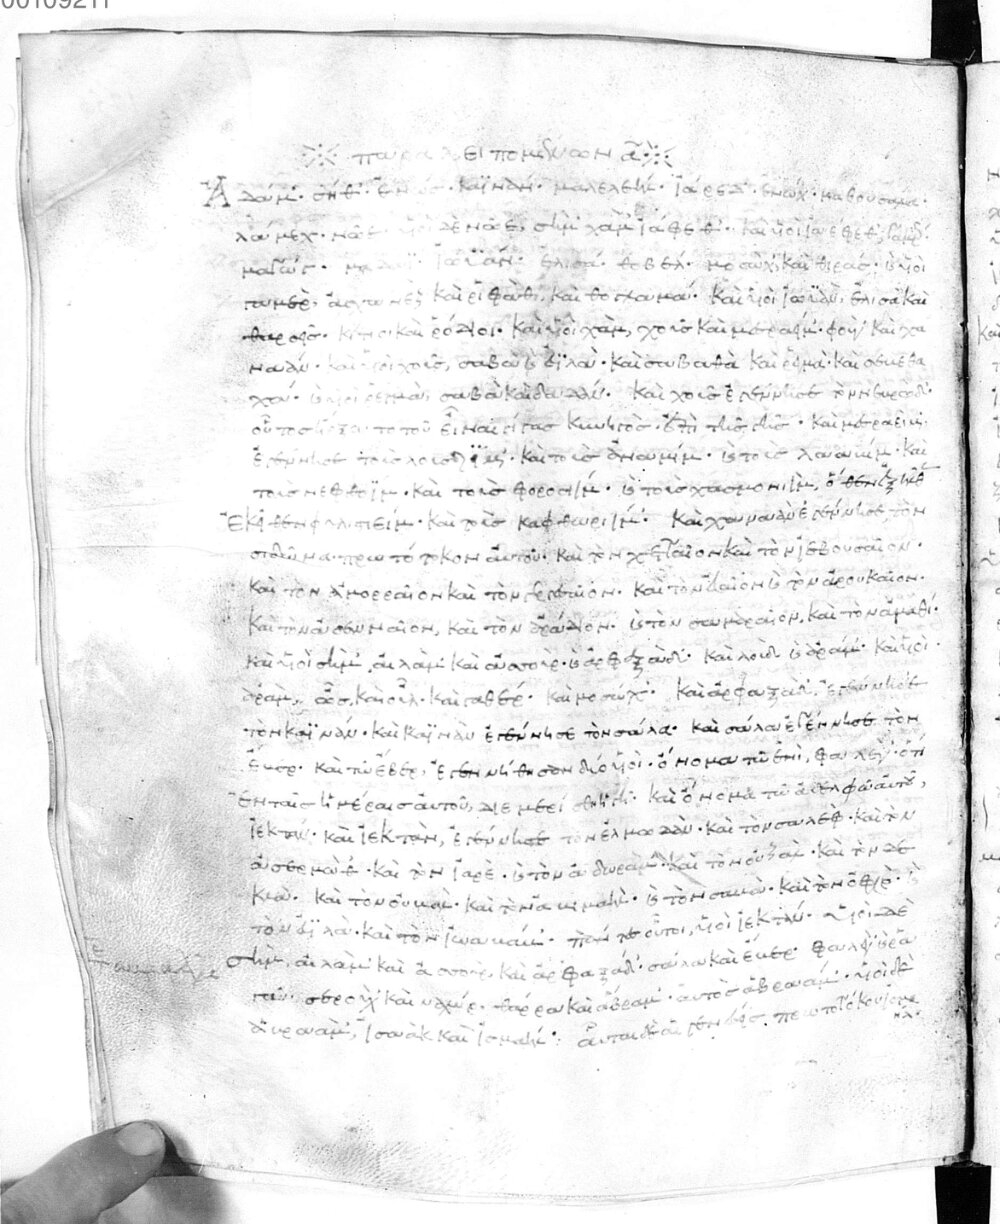 00109211
παραλειπομένων α
Ἀδάμ· σήθ· ἐνώς· καϊνάν· μαλελεήλ· ϊάρεδ· ἐνώχ· μαθουσάλα·
λάμεχ· νῶε· υἱοὶ δὲ νῶε, σήμ χάμ ϊάφεθ· καὶ υἱοὶ ϊάφεθ, γαμέρ·
μαγώγ· ϊωϋάν· ἐλισά· θοβέλ· μοσὼχ καὶ θιράς· καὶ υἱοὶ
καὶ ῥιφὰθ, καὶ θοργαμά· καὶ υἱοὶ ϊωϋὰν, ἐλισὰ καὶ
θαρσεῖς· κίτιοι καὶ ῥόδιοι· καὶ υἱοὶ χὰμ, χοὺς καὶ μεσραῒμ· φοὺδ καὶ χα
ναάν· καὶ υἱοὶ χοὺς, σαβὰ καὶ εὐϊλά· καὶ σαβαθὰ καὶ ῥεγμὰ· καὶ σεβεθα
χά· καὶ υἱοὶ ῥεγμὰ, σαβὰ καὶ δαδάν· καὶ χοὺς ἐγέννησε τὸν νεβρώδ·
οὗτος ἤρξατο τοῦ εἶναι γίγας κυνηγὸς ἐπὶ τῆς γῆς· καὶ μεσραεὶμ
ἐγέννησε τοὺς καὶ τοὺς καὶ τοὺς καὶ
τοὺς νεφθωΐμ· καὶ τοὺς καὶ τοὺς χασμονιὶμ, ὅθεν ἐξῆλθεν
ἐκεῖθεν φυλιστιεὶμ· καὶ τοὺς καφθωριίμ· καὶ χαναὰν ἐγέννησε τὸν
σιδῶνα πρωτότοκον αὐτοῦ· καὶ τὸν χετταῖον καὶ τὸν ϊεβουσαῖον·
καὶ τὸν ἀμορραῖον καὶ τὸν γεργεσαῖον· καὶ τὸν εὐαῖον καὶ τὸν ἀρουκαῖον·
καὶ τὸν ἀσενναῖον, καὶ τὸν ἀράδιον· καὶ τὸν σαμαραῖον, καὶ τὸν ἀμαθί·
καὶ υἱοὶ σὴμ, αἰλὰμ καὶ ἀσσοὺρ· καὶ ἀρφαξάδ· καὶ λοὺδ καὶ ἀράμ· καὶ υἱοὶ
ἀρὰμ, ὢς, καὶ οὒλ· καὶ γαθέρ· καὶ μοσόχ· καὶ ἀρφαξὰδ, ἐγέννησε
τὸν καϊνάν· καὶ καϊνὰν ἐγέννησε τὸν σάλα· καὶ σάλα ἐγέννησε τὸν
ἕβερ· καὶ τῷ ἕβερ, ἐγεννήθησαν δύο υἱοί· ὄνομα τῷ ἑνὶ, φαλέγ· ὅτι
ἐν ταῖς ἡμέραις αὐτοῦ, διεμερίσθη ἡ γῆ· καὶ ὄνομα τῷ ἀδελφῷ αὐτοῦ,
ϊεκτάν· καὶ ϊεκτὰν, ἐγέννησε τὸν ἐλμωδάδ· καὶ τὸν σαλέφ· καὶ τὸν
ἀσερμώθ· καὶ τὸν ϊαρέ· καὶ τὸν ἀδωράμ· καὶ τὸν οὐζάλ· καὶ τὸν δε
κλά· καὶ τὸν καὶ τὸν καὶ τὸν σαβὰ· καὶ τὸν ὀφείρ· καὶ
τὸν εὐϊλά· καὶ τὸν ϊωβάβ· πάντες οὗτοι, υἱοὶ ϊεκτάν· υἱοὶ δὲ
σὴμ, αἰλὰμ καὶ ἀσσούρ, καὶ ἀρφαξάδ· σάλα καὶ ἕβερ· φαλὲγ ῥα
γαῦ· σεροὺχ καὶ ναχώρ· θάρρα καὶ ἄβραμ· αὐτὸς ἀβραάμ· υἱοὶ δὲ
ἀβραὰμ, ϊσαὰκ καὶ ϊσμαήλ· αὗται δὲ αἱ γενέσεις πρωτοτόκου